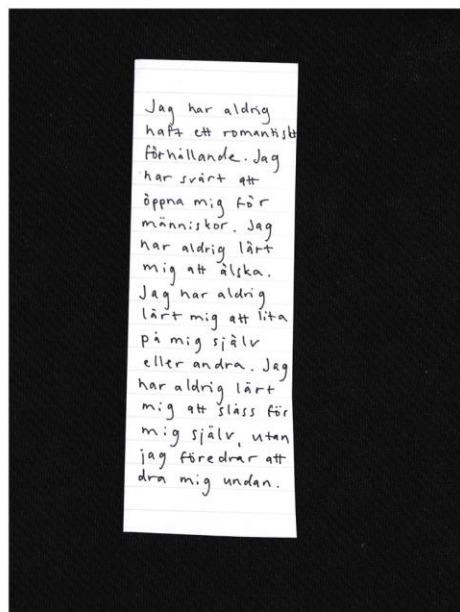 Jag har aldrig
haft ett romantiskt
förhållande. Jag
har svårt att
öppna mig för
människor. Jag
har aldrig lärt
mig att älska.
Jag har aldrig
lärt mig att lita
på mig själv
eller andra. Jag
har aldrig lärt
mig att slåss för
mig själv, utan
jag föredrar att
dra mig undan.